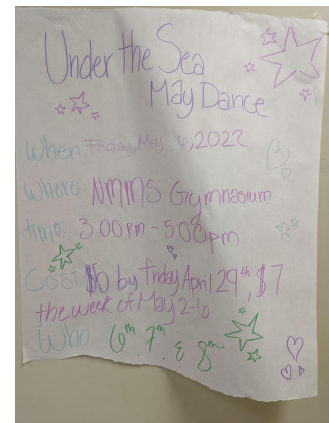 Under the Sea
May Dance
When Friday, May 6, 2022
Where: NMMS Gymnasium
time: 3:00pm - 5:00pm
Cost: $6 by friday April 29th, $7
the week of May 2-6
Who: 6th, 7th, & 8th